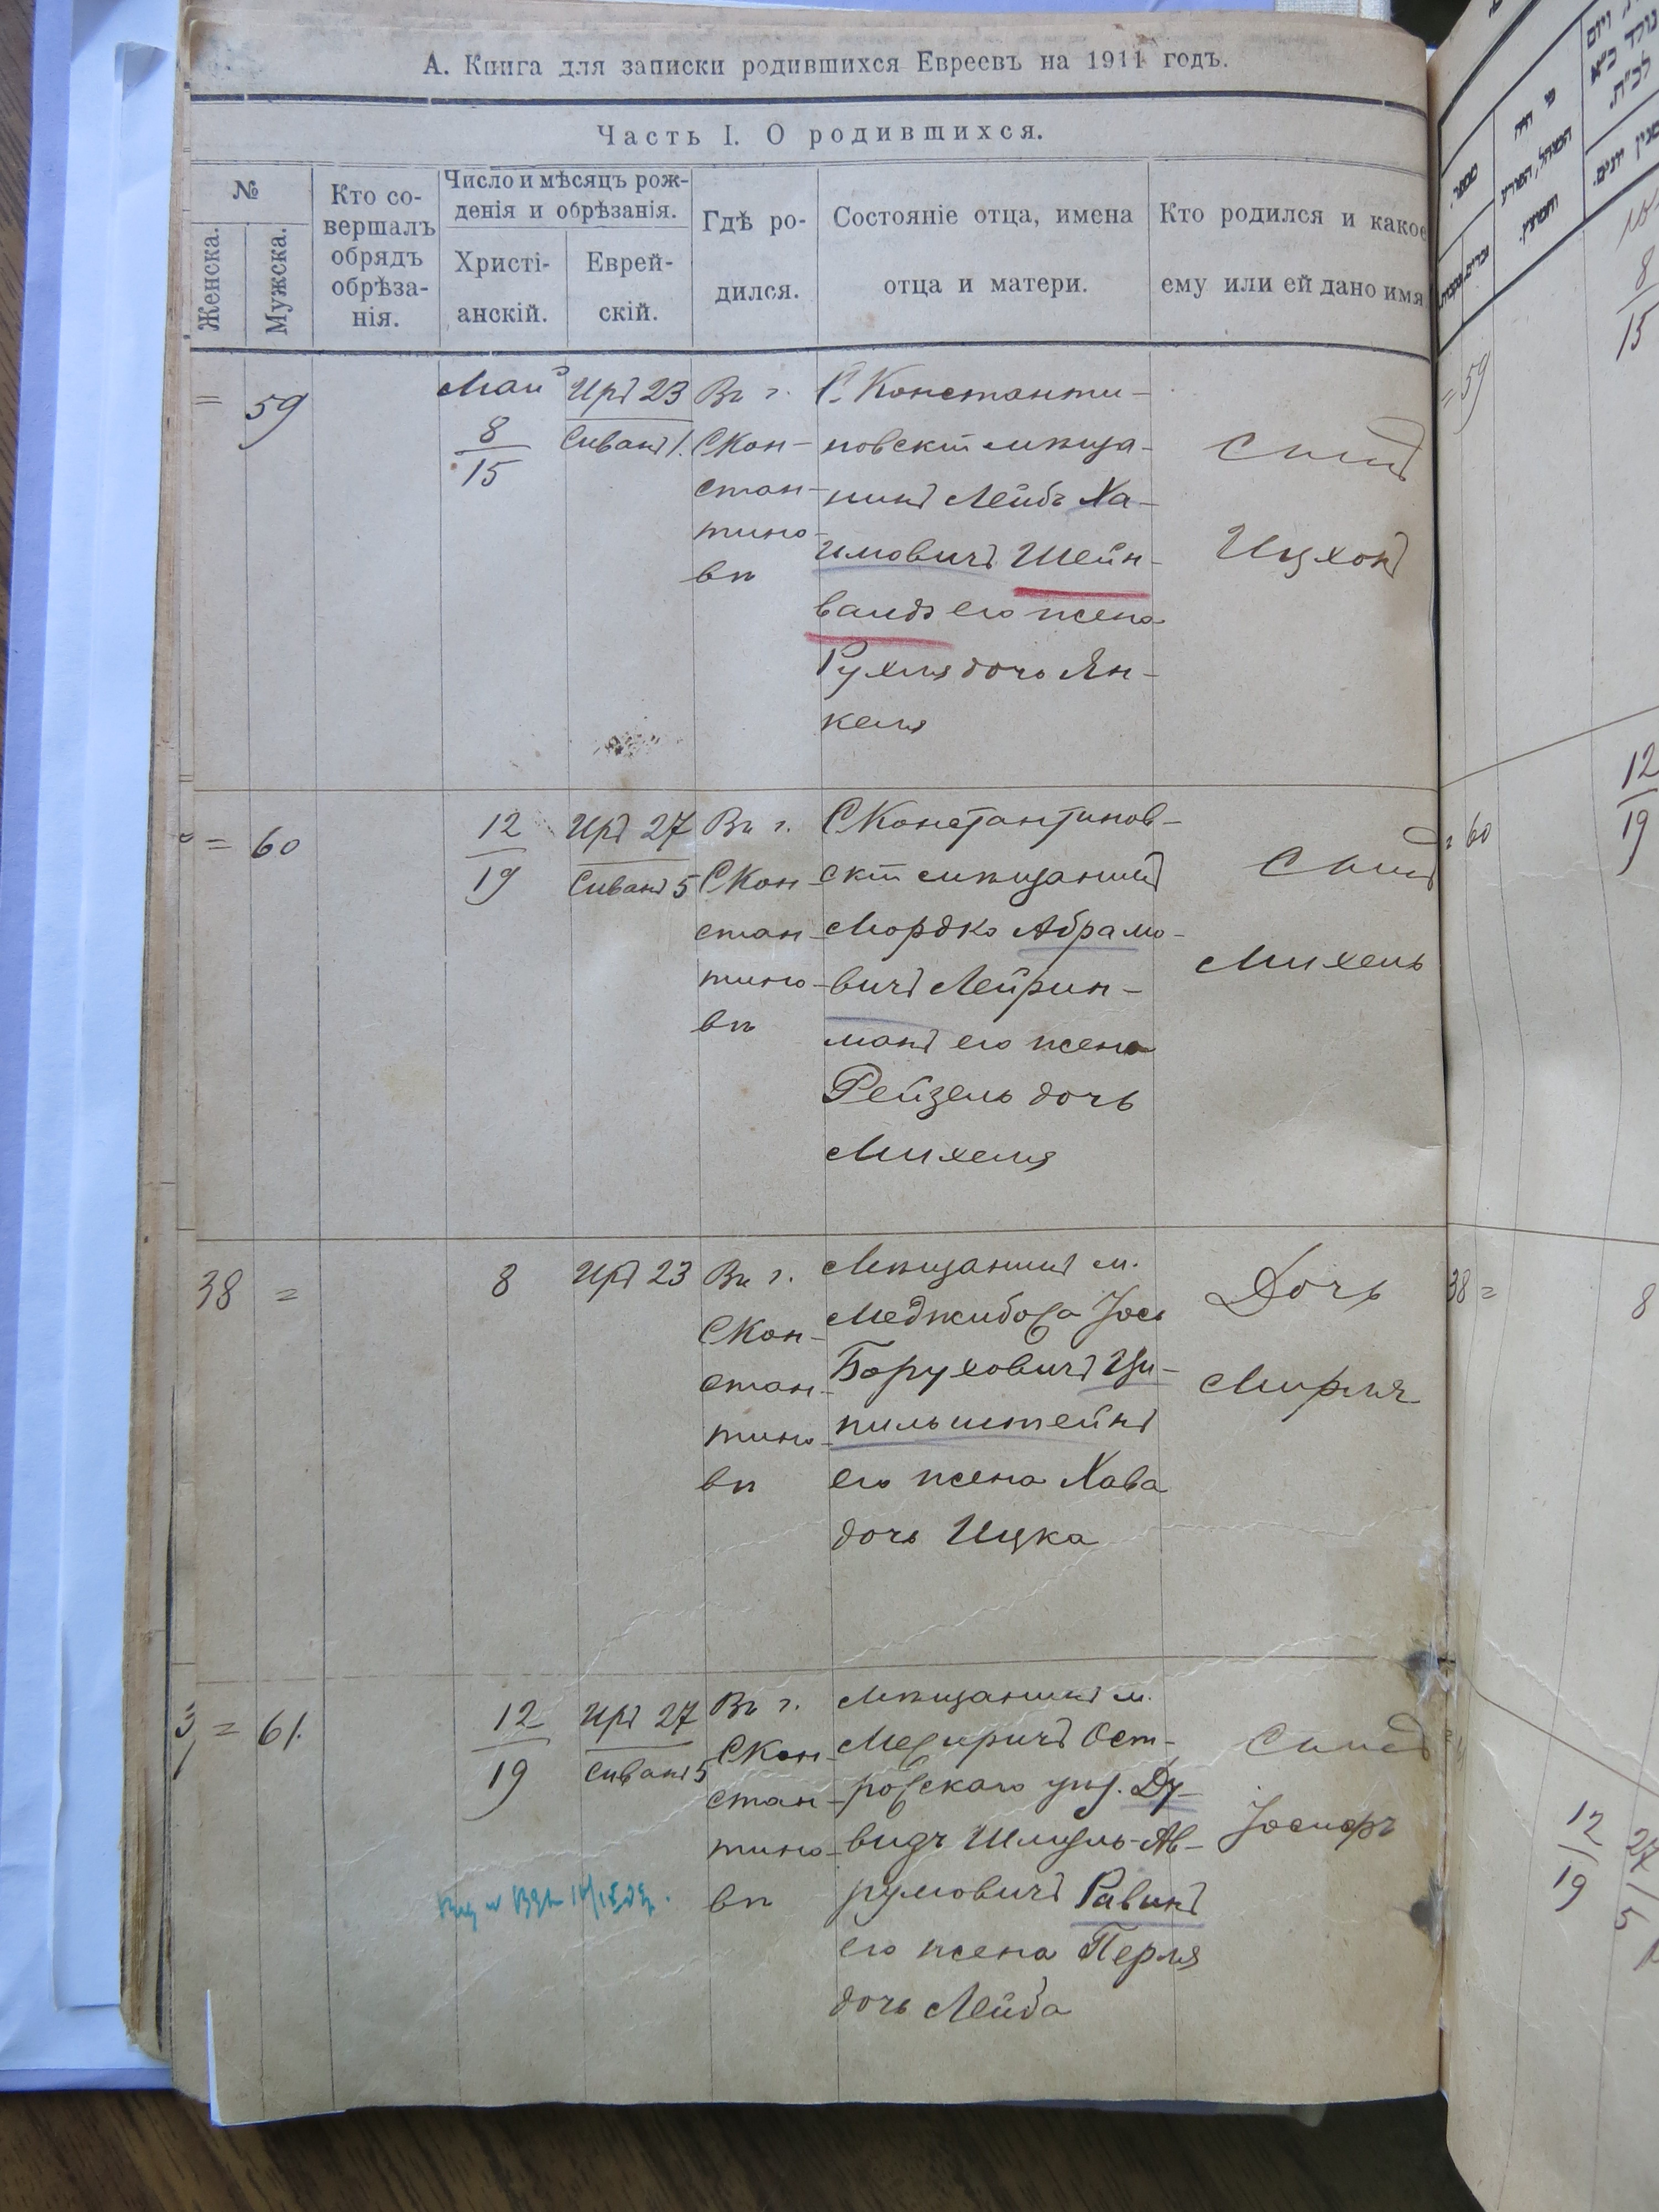 А. Книга для записки родившихся Евреевъ на 1911 годъ.
Часть I. О родившихся.
№
Женска.
Мужска.
Кто со-
вершалъ
обрядъ
обрѣза-
нія.
Число и мѣсяцъ рож-
денія и обрѣзанія.
Христі-
анскій.
Еврей-
скій.
Гдѣ ро-
дился.
Состояніе отца, имена
отца и матери.
Кто родился и какое
ему или ей дано имя
= 59
Май
8
15
Иръ 23
Сиванъ 1.
Въ г.
СКон-
стан-
тино-
вѣ
С. Константи-
новскій мѣща-
нинъ Лейбъ Ха-
имовичъ Шейн-
вальдъ его жена
Рухля дочь Ян-
келя
Сынъ
Ицхокъ
= 60
12
19
Иръ 27
Сиванъ 5
Въ г.
СКон-
стан-
тино-
вѣ
СКонстантинов-
скій мѣщанинъ
Мордко Абрамо-
вичъ Лейрин-
манъ его жена
Рейзель дочь
Михеля
Сынъ
Михель
38 =
8
Иръ 23
Въ г.
СКон-
стан-
тино-
вѣ
Мѣщанинъ м.
Меджибожа Іось
Боруховичъ Ци-
пильштейнъ
его жена Хава
дочь Ицка
Дочь
Мирля
= 61.
12
19
Иръ 27
Сиванъ 5
Въ г.
СКон-
стан-
тино-
вѣ
Мѣщанинъ м.
Межиричъ Ост-
рожскаго уѣз. Ду-
видъ Шлиоль-Ав-
румовичъ Равинъ
его жена Перля
дочь Лейба
Сынъ
Іосифъ
= 59
15
8
15
= 60
12
19
38 =
8
12
19
27
5